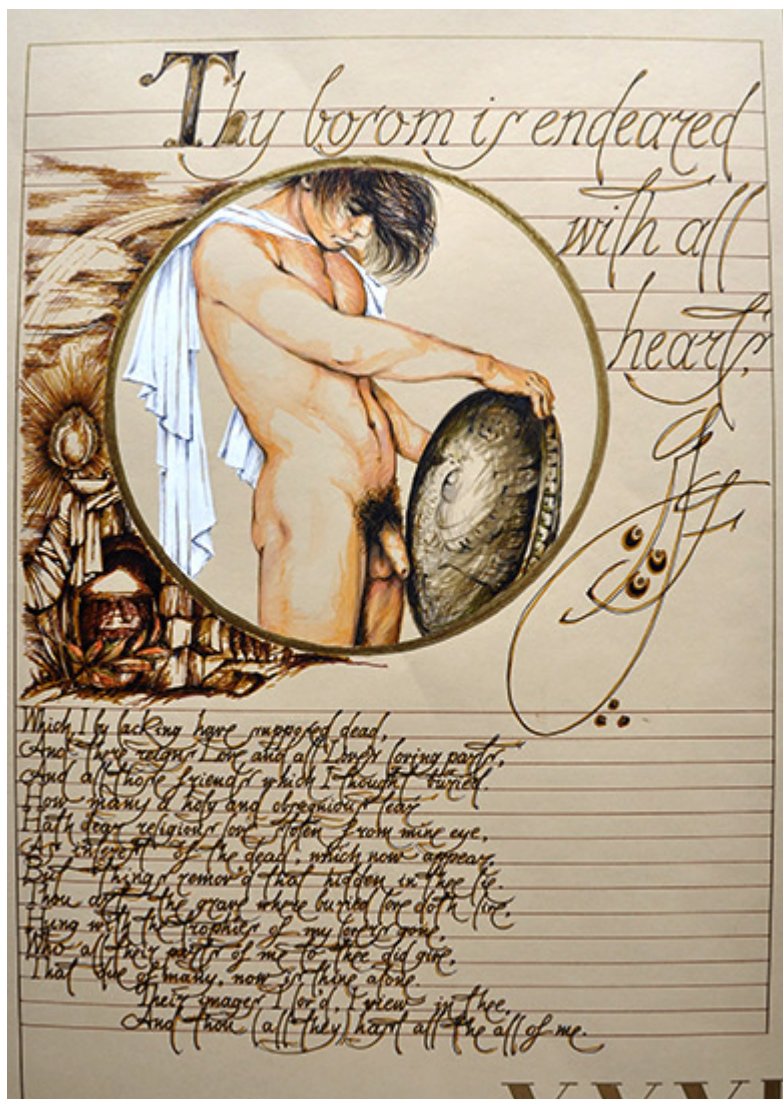 Thy bosom is endeared
with all
hearts,
Which I by lacking have supposed dead,
And there reigns Love and all Love's loving parts,
And all those friends which I thought buried.
How many a holy and obsequious tear
Hath dear religious love stolen from mine eye,
As interest of the dead, which now appear,
But things remov'd that hidden in thee lie.
Thou art the grave where buried love doth live,
Hung with the trophies of my lovers gone,
Who all their parts of me to thee did give,
That due of many, now is thine alone.
Their images I lov'd, I view in thee,
And thou (all they) hast all the all of me.
XXXI